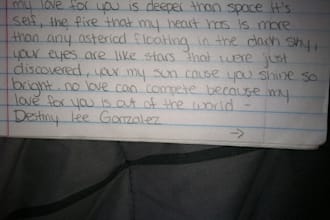 my love for you is deeper than space it's
self, the fire that my heart has is more
than any asteriod floating in the dark sky,
your eyes are like stars that were just
discovered, your my sun cause you shine so
bright. no love can compete because my
love for you is out of the world -
Destiny Lee Gonzalez
→